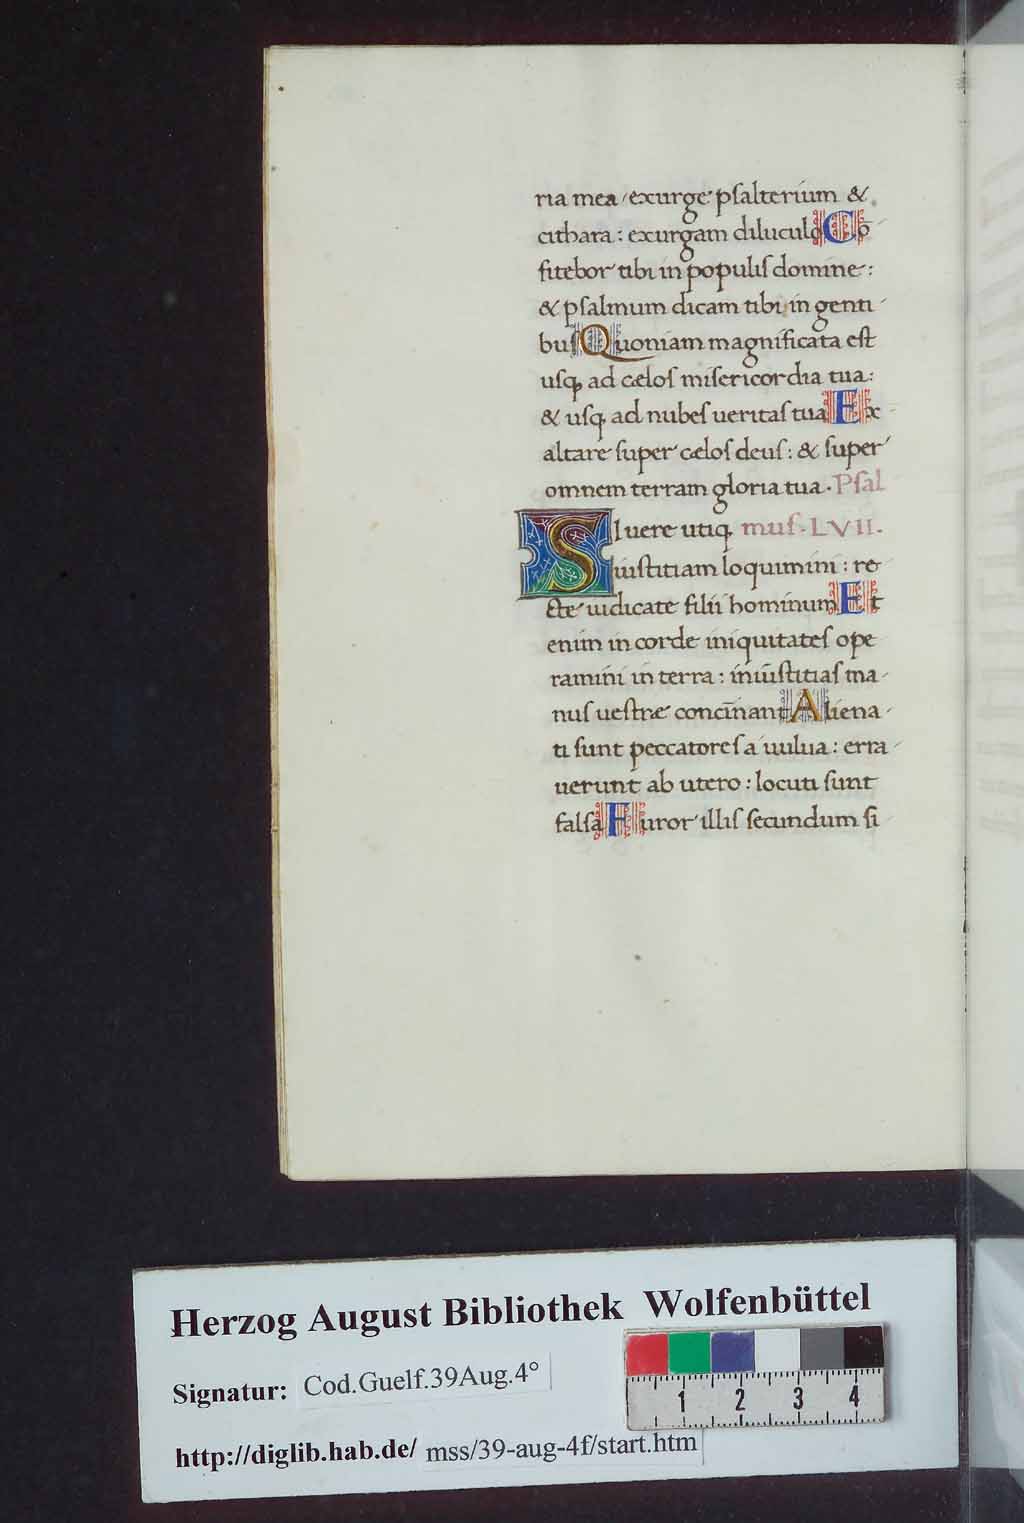 ria mea / exurge psalterium &
cithara : exurgam diluculo Cō
fitebor tibi in populis domine :
& psalmum dicam tibi in genti
bus Quoniam magnificata est
usq; ad celos misericordia tua :
& usq; ad nubes ueritas tua Ex
altare super celos deus : & super
omnem terram gloria tua . Psal
SI uere utiq; mus . LVII .
iustitiam loquimini : re
cte iudicate filii hominum Et
enim in corde iniquitates ope
ramini in terra : iniustitias ma
nus uestrae concinnant Aliena
ti sunt peccatores a uulua : erra
uerunt ab utero : locuti sunt
falsa Furor illis secundum si
Herzog August Bibliothek Wolfenbüttel
Signatur: Cod.Guelf.39Aug.4°
http://diglib.hab.de/ mss/39-aug-4f/start.htm
1 2 3 4